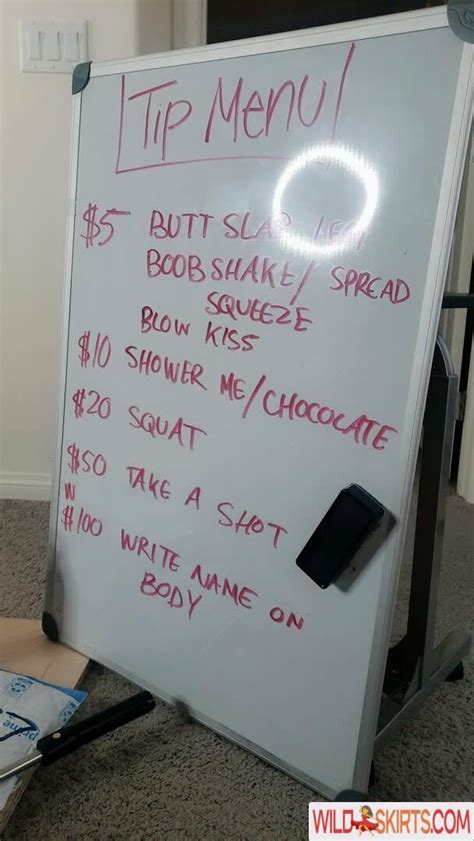 Tip Menu
$5 BUTT SLAP
BOOB SHAKE/ SPREAD
SQUEEZE
BLOW KISS
$10 SHOWER ME/CHOCOLATE
$20 SQUAT
$50 TAKE A SHOT
$100 WRITE NAME ON
BODY
prime
WILDSKIRTS.COM